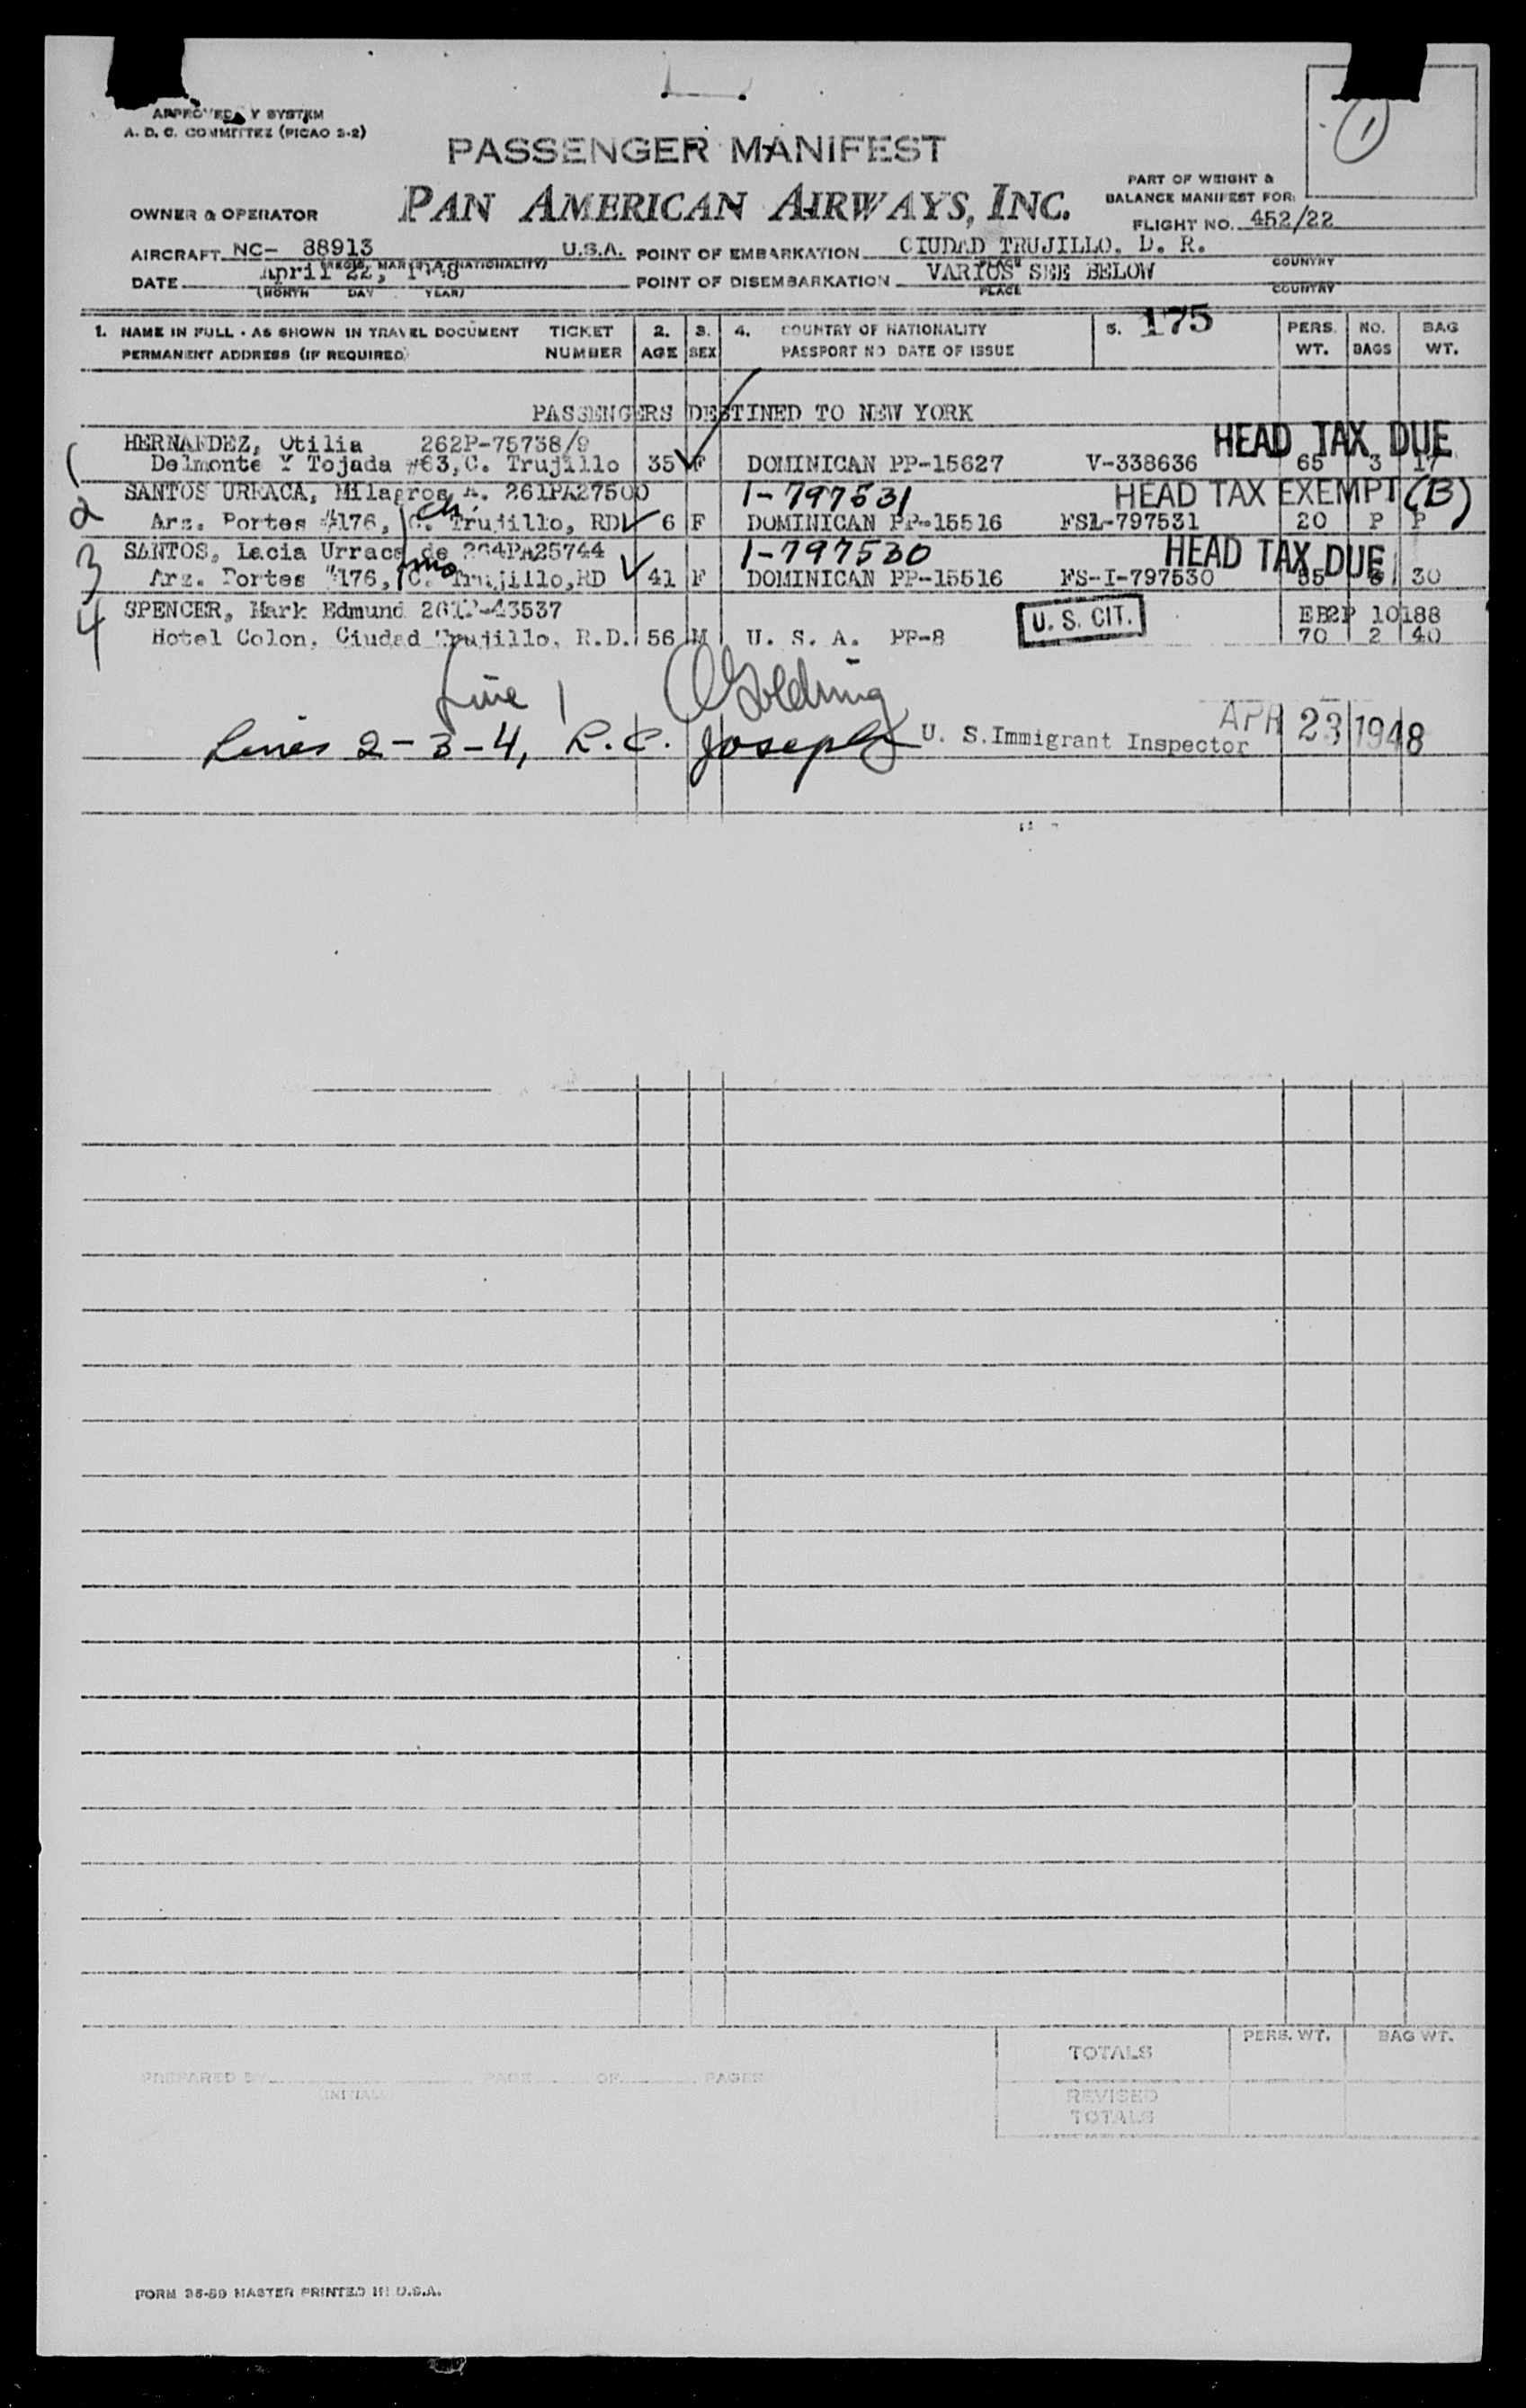 APPROVED BY SYSTEM
A. D. C. COMMITTEE (PICAO 2-2)
PASSENGER MANIFEST
PAN AMERICAN AIRWAYS, INC.
1
PART OF WEIGHT &
BALANCE MANIFEST FOR:
OWNER & OPERATOR
FLIGHT NO. 452/22
AIRCRAFT NC- 88913 U.S.A. POINT OF EMBARKATION CIUDAD TRUJILLO. D. R.
(NATIONALITY) PLACE COUNTRY
DATE April 22, 1948 POINT OF DISEMBARKATION VARIOUS SEE BELOW
(MONTH DAY YEAR) PLACE COUNTRY
1. NAME IN FULL - AS SHOWN IN TRAVEL DOCUMENT TICKET 2. 3. 4. COUNTRY OF NATIONALITY 5. 175 PERS. NO. BAG
PERMANENT ADDRESS (IF REQUIRED) NUMBER AGE SEX PASSPORT NO DATE OF ISSUE WT. BAGS WT.
PASSENGERS DESTINED TO NEW YORK
1 HERNANDEZ, Otilia 262P-75738/9 HEAD TAX DUE
Delmonte Y Tojada #63, C. Trujillo 35 F DOMINICAN PP-15627 V-338636 65 3 17
2 SANTOS URRACA, Milagros A. 261PA27500 1-797531 HEAD TAX EXEMPT (B)
Arz. Portes #176, C. Trujillo, RD 6 F DOMINICAN PP-15516 FSI-797531 20 P P
3 SANTOS, Lecia Urraca de 264PA25744 1-797530 HEAD TAX DUE
Arz. Portes #176, C. Trujillo, RD 41 F DOMINICAN PP-15516 FS-I-797530 30
4 SPENCER, Mark Edmund U. S. CIT. 10188
Hotel Colon, Ciudad Trujillo, R.D. 56 M U. S. A. PP-8 70 2 40
Line 1 Golding
Lines 2-3-4, R.C. Joseph U. S. Immigrant Inspector APR 23 1948
PERS. WT. BAG WT.
TOTALS
PREPARED BY PAGE OF PAGES
(INITIAL)
REVISED
TOTALS
FORM 35-89 MASTER PRINTED IN U.S.A.